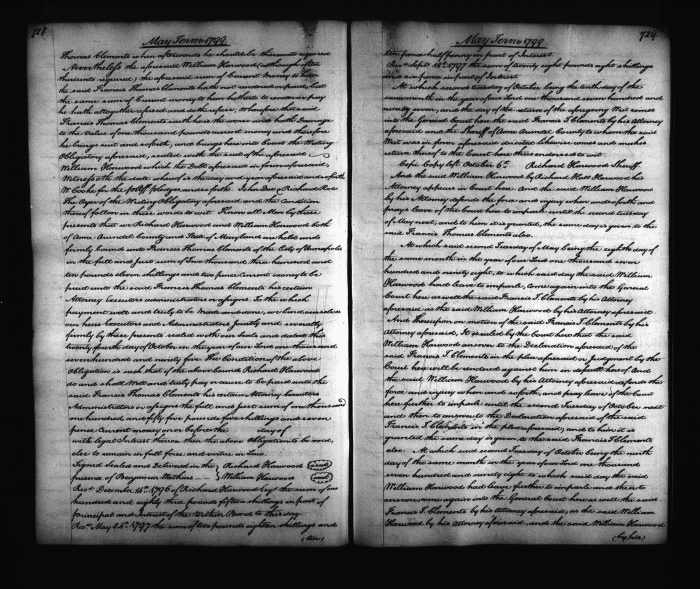 728
May Term 1799
Thomas Clements when afterwards he should be thereunto required
Nevertheless the aforesaid William Harwood (although often
thereunto required) the aforesaid sum of Current money to him
the said Francis Thomas Clements hath not rendered or paid, but
the same sum of current money to him hitherto to render or pay
he hath altogether refused and still refuses, wherefore the said
Francis Thomas Clements saith he is the worse and hath Damage
to the value of one thousand pounds current money and therefore
he brings suit and so forth, and brings here into Court the Writing
Obligatory aforesaid, sealed with the seal of the aforesaid
William Harwood which the Debt aforesaid in form aforesaid,
Witnesseth the date whereof is the day and year aforesaid and so forth
W Cooke for the Pltff. Pledges and so forth John Doe & Richard Roe
The Oyer of the Writing Obligatory aforesaid and the Condition
thereof follow in these words to wit. Know all Men by these
presents that we Richard Harwood and William Harwood both
of Anne Arundel County and State of Maryland are held and
firmly bound unto Francis Thomas Clements of the City of Annapolis
in the full and just sum of Two thousand three hundred and
ten pounds eleven shillings and two pence current money to be
paid unto the said Francis Thomas Clements his certain
Attorney Executors administrators or assigns. To the which
payment well and truly to be made and done, we bind ourselves
our heirs Executors and Administrators Jointly and severally
firmly by these presents sealed with our seals and dated this
twenty fourth day of October in the year of our Lord one thousand
seven hundred and ninety five The Condition of the above
Obligation is such that if the above bound Richard Harwood
do and shall Well and truly pay or cause to be paid unto the
said Francis Thomas Clements his certain Attorney Executors
Administrators or assigns the full and just sum of one thousand
one hundred and fifty five pounds five shillings and seven
pence Current money on or before the day of
with legal Interest thereon then the above Obligation to be void,
else to remain in full force and virtue in Law.
Signed Sealed and Delivered in the Richard Harwood (seal)
presence of Benjamin William Harwood (seal)
Recd. December 14th. 1796 of Richard Harwood Esqr the sum of one
hundred and eighty three pounds fifteen shillings in part of
Principal and Interest of the Within Bond to this day
Recd. May 24th. 1797 the sum of two pounds eighteen shillings and
(ten)
729
May Term 1799
ten pence half penny in part of Interest.
Recd. Septr. 14th. 1797 the sum of twenty eight pounds eight shillings
and six pence in part of Interest
At which second Tuesday of October being the tenth day of the
same month in the year of our Lord one thousand seven hundred and
ninety seven and the day of the return of the aforegoing Writ comes
into the General Court here the said Francis T Clements by his Attorney
aforesaid and the Sheriff of Anne Arundel County to whom the said
Writ was in form aforesaid directed likewise comes and makes
return thereof to the Court here thus endorsed to wit.
Cepi Copy left October 6th. Richard Harwood Sheriff
And the said William Harwood by Richard Hall Harwood his
Attorney appears in Court here. And the said William Harwood
by his Attorney defends the force and injury when and so forth and
prays leave of the Court here to imparle until the second tuesday
of May next, and to him it is granted, the same day is given to the
said Francis Thomas Clements also.
At which said second Tuesday of May being the eighth day of
the same month in the year of our Lord one thousand seven
hundred and ninety eight, to which said day the said William
Harwood had leave to imparle, Come again into the General
Court here as well the said Francis T Clements by his Attorney
aforesaid as the said William Harwood by his Attorney aforesaid
And thereupon on motion of the said Francis T Clements by his
Attorney aforesaid, It is ruled by the Court here that the said
William Harwood answer to the Declaration aforesaid of the
said Francis T Clements in the plea aforesaid or Judgment by the
Court here will be rendered against him in default thereof And
the said William Harwood by his Attorney aforesaid defends the
force and injury when and so forth and prays leave of the Court
here further to imparle until the second Tuesday of October next
and then to answer to the Declaration aforesaid of the said
Francis T Clements in the plea aforesaid, and to him it is
granted the same day is given to the said Francis T Clements
also. At which said second Tuesday of October being the ninth
day of the same month in the year of our Lord one thousand
seven hundred and ninety eight to which said day the said
William Harwood had leave further to imparle and then to
answer, come again into the General Court here as well the said
Francis T. Clements by his Attorney aforesaid, as the said William
Harwood by his Attorney aforesaid, and the said William Harwood
(by his)